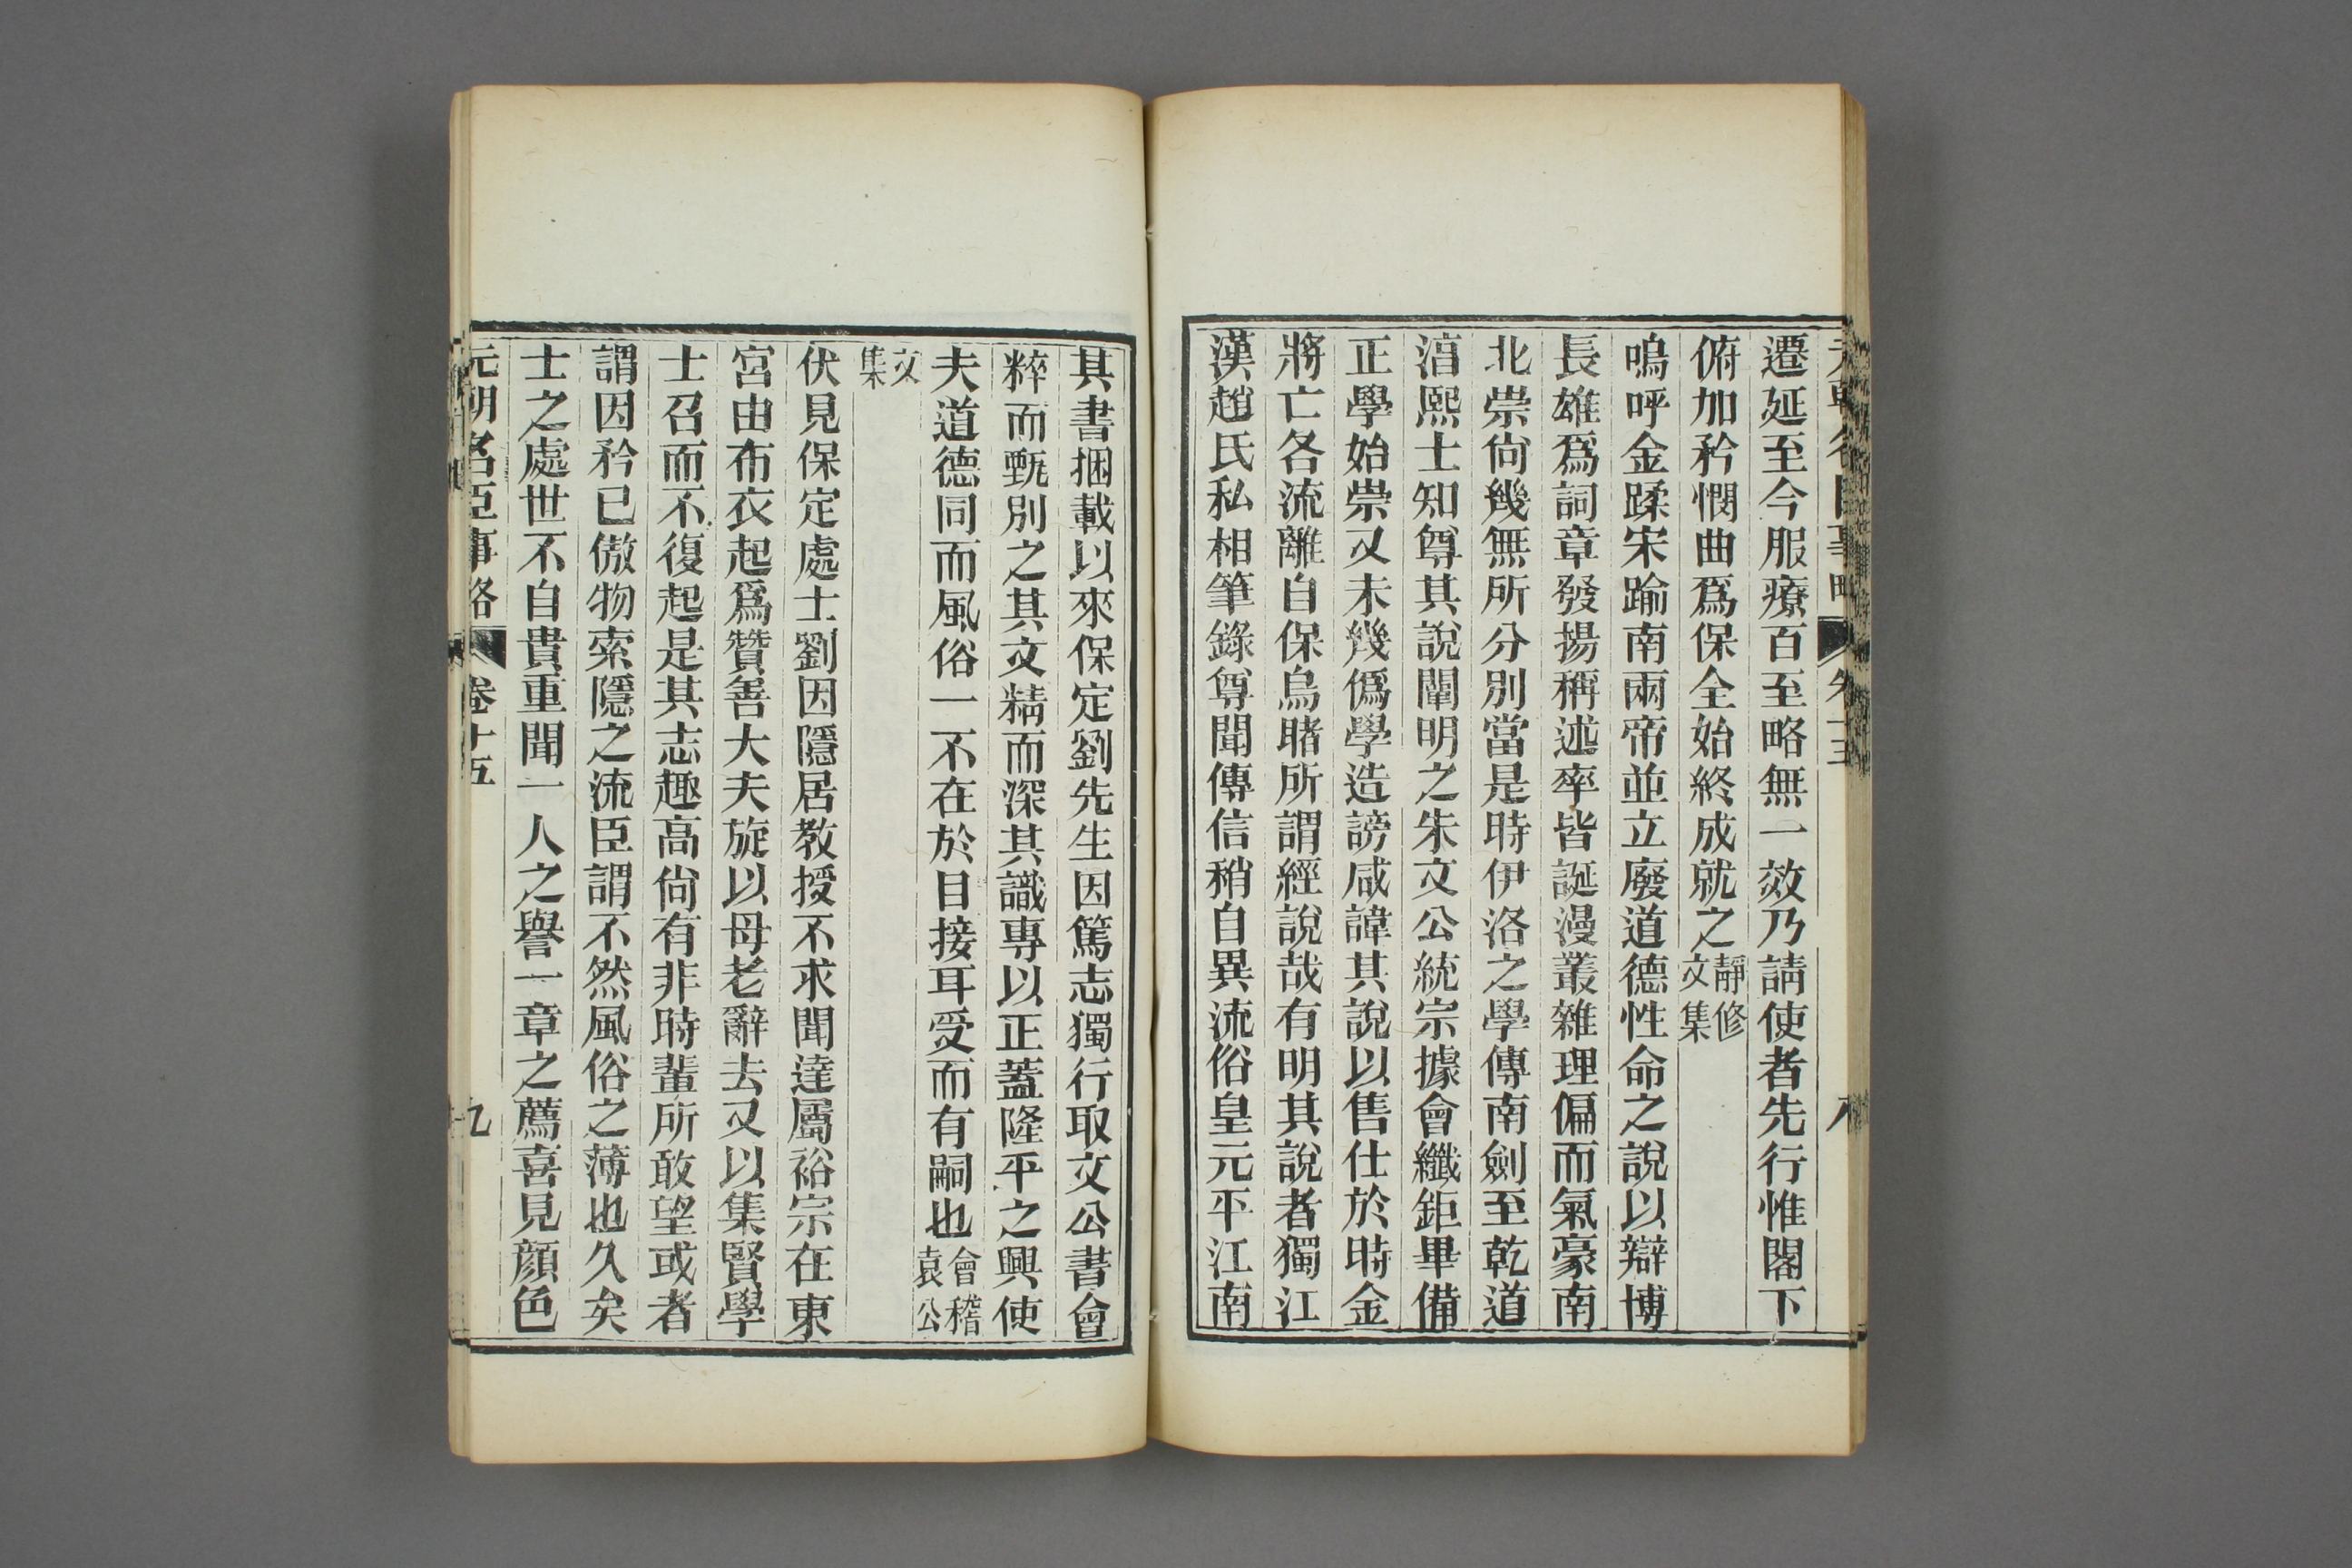 遷延至今服療百至略無一效乃請使者先行惟閣下
俯加矜憫曲爲保全始終成就之靜修文集
嗚呼金蹂宋踰南兩帝並立廢道德性命之說以辯博
長雄爲詞章發揚稱述率皆誕漫叢雜理偏而氣豪南
北崇尙幾無所分別當是時伊洛之學傳南劍至乾道
湻熙士知尊其說闡明之朱文公統宗據會纖鉅畢備
正學始崇又未幾僞學造謗咸諱其說以售仕於時金
將亡各流離自保烏睹所謂經說哉有明其說者獨江
漢趙氏私相筆錄尊聞傳信稍自異流俗皇元平江南
其書捆載以來保定劉先生因篤志獨行取文公書會
粹而甄別之其文精而深其識專以正蓋隆平之興使
夫道德同而風俗一不在於目接耳受而有嗣也會稽袁公
文集
伏見保定處士劉因隱居教授不求聞達屬裕宗在東
宮由布衣起爲贊善大夫旋以母老辭去又以集賢學
士召而不復起是其志趣高尙有非時輩所敢望或者
謂因矜已傲物索隱之流臣謂不然風俗之薄也久矣
士之處世不自貴重聞一人之譽一章之薦喜見顏色
元朝名臣事略 卷十五 九